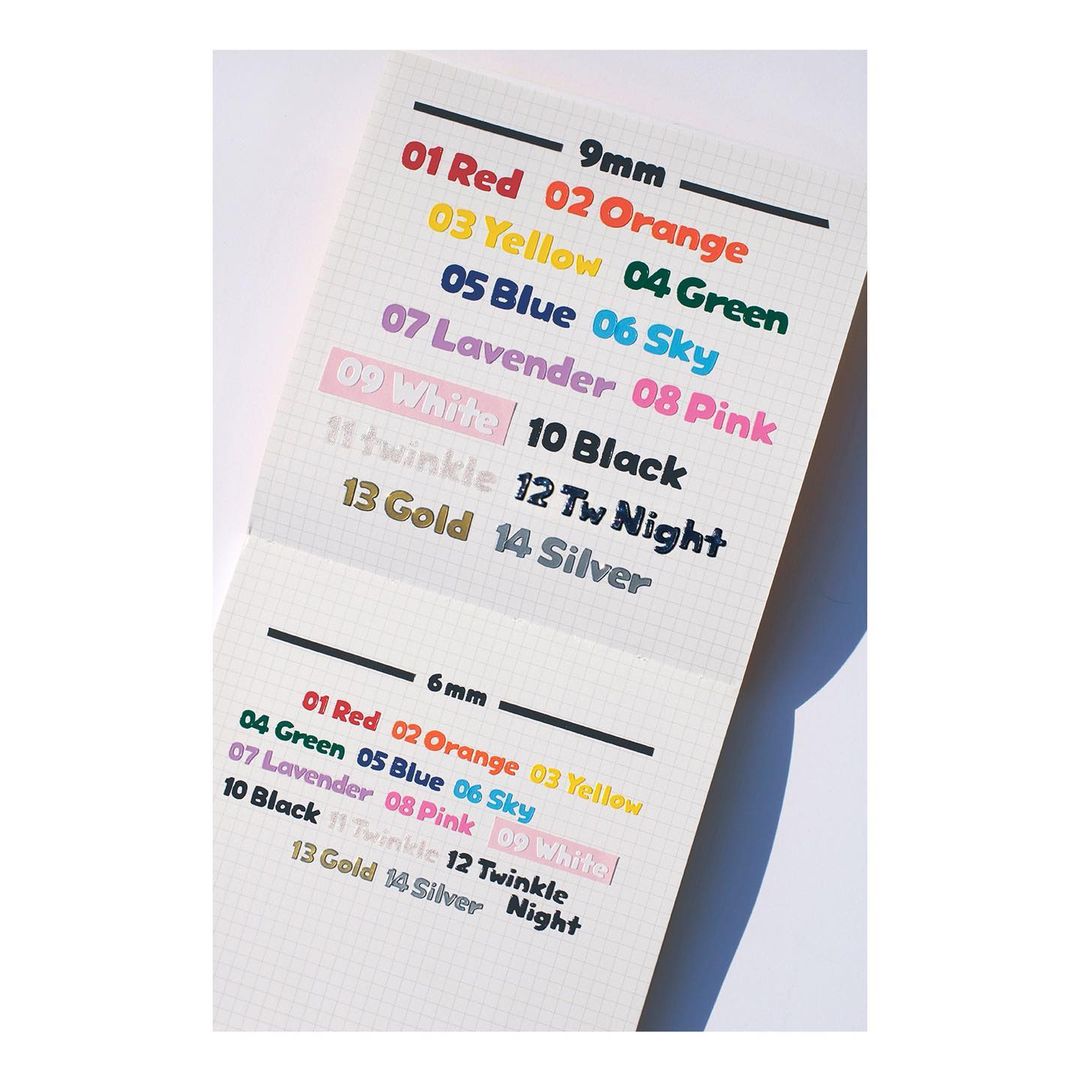 9mm
01 Red 02 Orange
03 Yellow 04 Green
05 Blue 06 Sky
07 Lavender 08 Pink
09 White 10 Black
11 twinkle 12 Tw Night
13 Gold 14 Silver
6mm
01 Red 02 Orange 03 Yellow
04 Green 05 Blue 06 Sky
07 Lavender 08 Pink 09 White
10 Black 11 Twinkle 12 Twinkle
Night
13 Gold 14 Silver